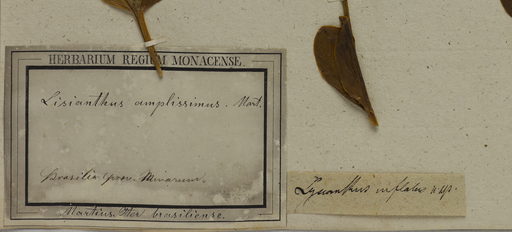 HERBARIUM REGIUM MONACENSE.
Lisianthus amplissimus. Mart.
Brasilia (prov. Minarum.
Martius. Iter brasiliense.
Lysianthus inflatus